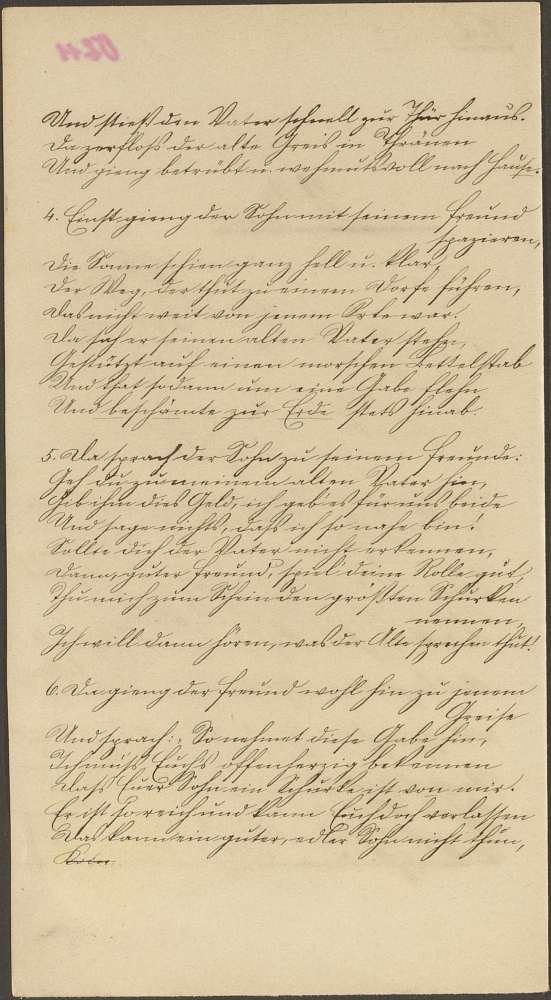 Und stieß den Vater schnell zur Thür hinaus.
Da zerfloß der alte Greis in Thränen
Und gieng betrübt u. wehmutsvoll nach Hause.
4. Einst gieng der Sohn mit seinem Freund
spazieren,
Die Sonne schien ganz hell u. klar,
Der Weg, der that zu einem Dorfe führen,
Das nicht weit von jenem Orte war.
Da sah er seinen alten Vater stehn,
Gestützt auf einen morschen Bettelstab
Und that sodann um eine Gabe flehn
Und beschämte zur Erde stets hinab.
5. Da sprach der Sohn zu seinem Freunde:
Geh du zu meinem alten Vater hin,
Gib ihm dies Geld, ich geb' es für uns beide
Und sage nichts, daß ich so nahe bin!
Sollte dich der Vater nicht erkennen,
Dann, guter Freund, spiel' deine Rolle gut,
Thu mich zum Schein den größten Schurken
nennen,
Ich will dann hören, was der Alte sprechen thut!
6. Da gieng der Freund wohl hin zu jenem
Greise
Und sprach: So nehmet diese Gabe hin,
Ich muß Euch's offenherzig bekennen
Daß Euer Sohn ein Schurke ist von mir.
Er ist so reich und kann Euch doch verlassen
Das kann ein guter, edler Sohn nicht thun,